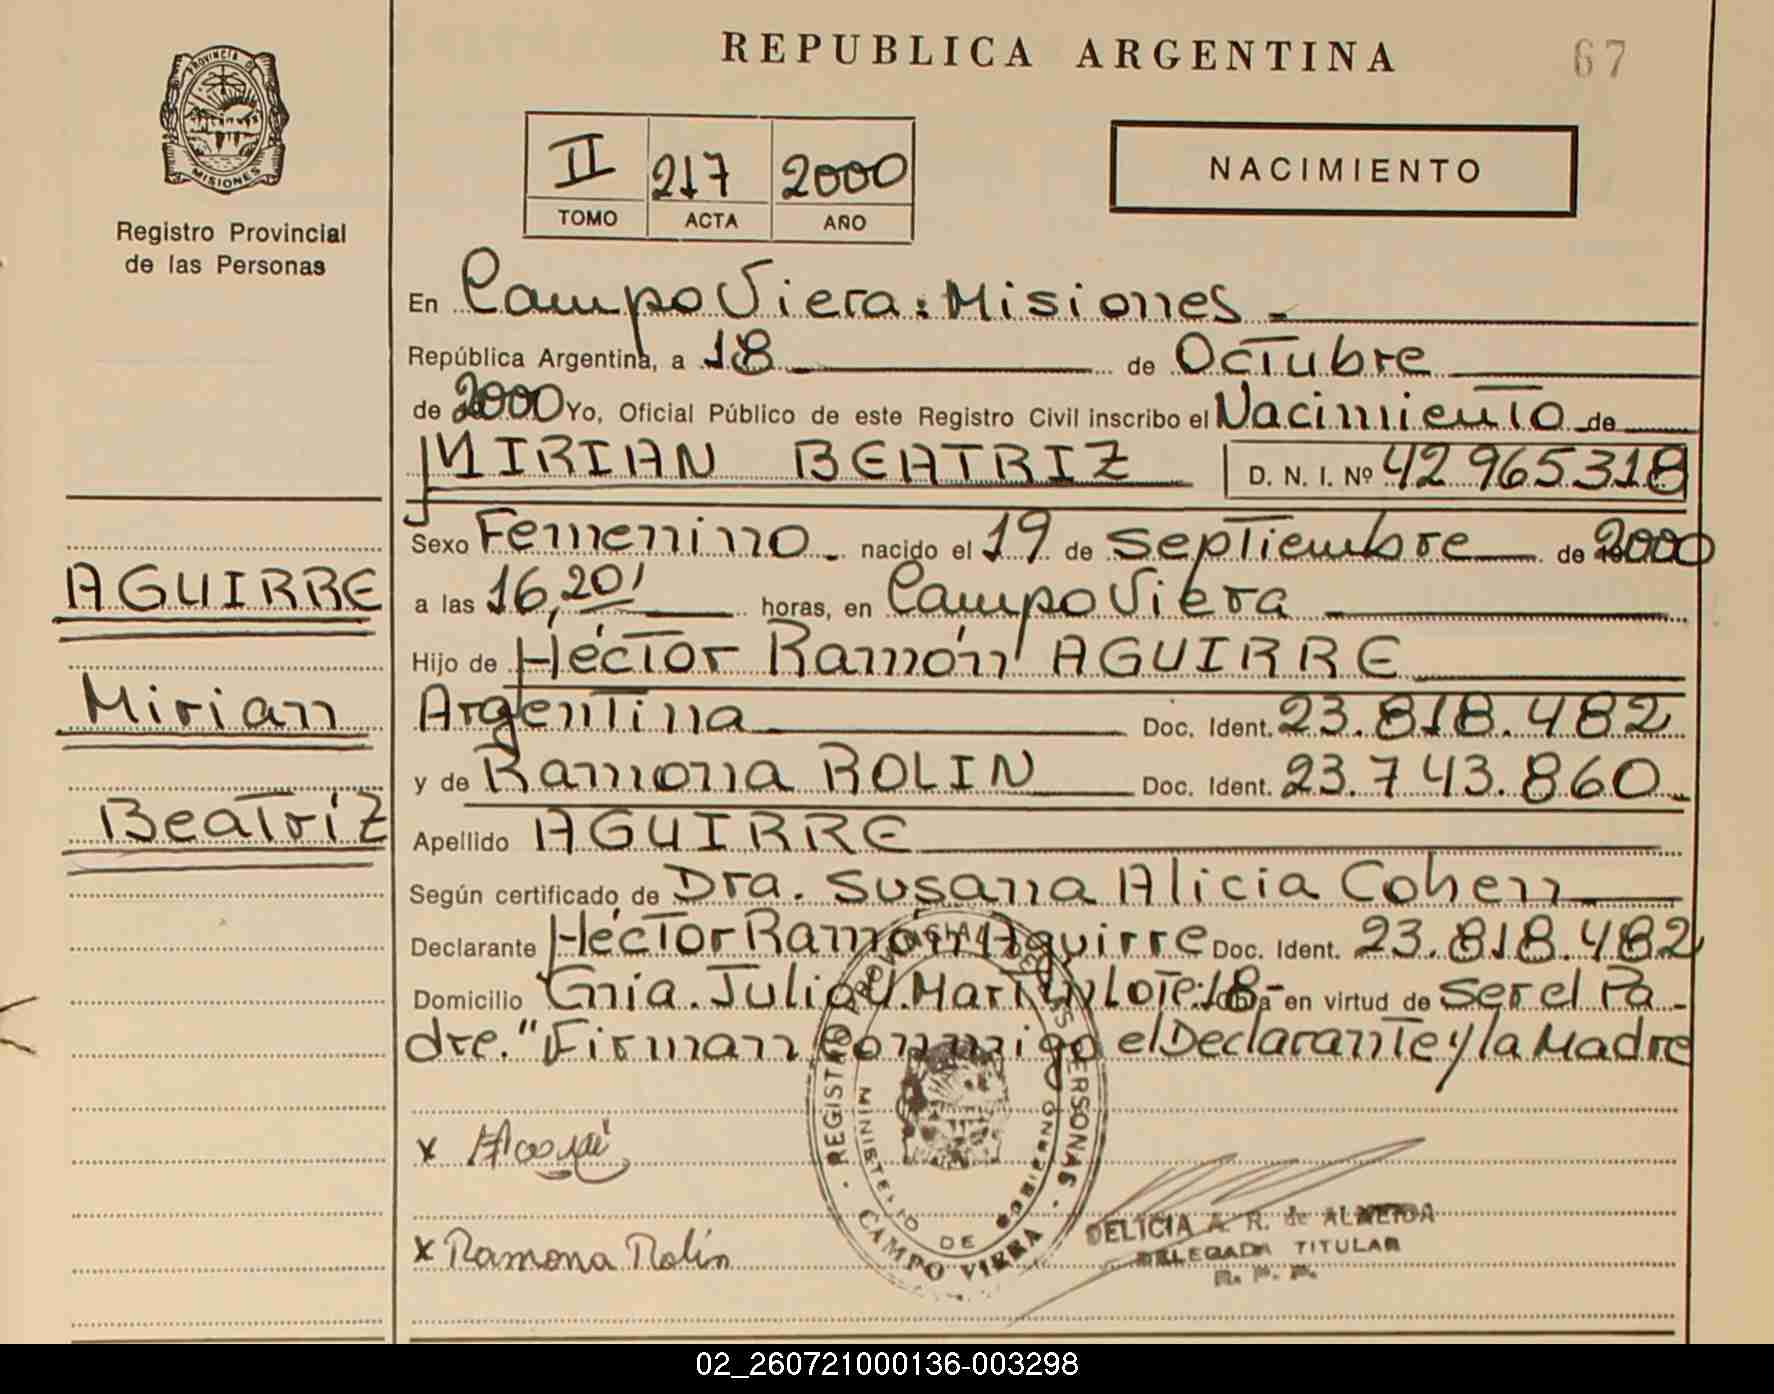 REPUBLICA ARGENTINA
67
PROVINCIA D
MISIONES
Registro Provincial
de las Personas
II 217 2000
TOMO ACTA AÑO
NACIMIENTO
En Campo Viera: Misiones.
República Argentina, a 18 de Octubre
de 2000 Yo, Oficial Público de este Registro Civil inscribo el Nacimiento de
MIRIAN BEATRIZ D. N. I. Nº 42965318
Sexo Femenino. nacido el 19 de septiembre de 2000
a las 16,20' horas, en Campo Viera
Hijo de Héctor Ramón AGUIRRE
Argentina Doc. Ident. 23.818.482
y de Ramona ROLIN Doc. Ident. 23.743.860
Apellido AGUIRRE
Según certificado de Dra. Susana Alicia Cohen
Declarante Héctor Ramón Aguirre Doc. Ident. 23.818.482
Domicilio Cnia. Julio U. Martin Lote: 18- en virtud de ser el Pa-
dre." Firman Conmigo el Declarante y la Madre
AGUIRRE
Mirian
Beatriz
x
x Ramona Rolin
REGISTRO PROVINCIAL DE LAS PERSONAS
MINISTERIO DE GOBIERNO
CAMPO VIERA
DELICIA A. R. de ALMEIDA
DELEGADA TITULAR
R. P. P.
02_260721000136-003298